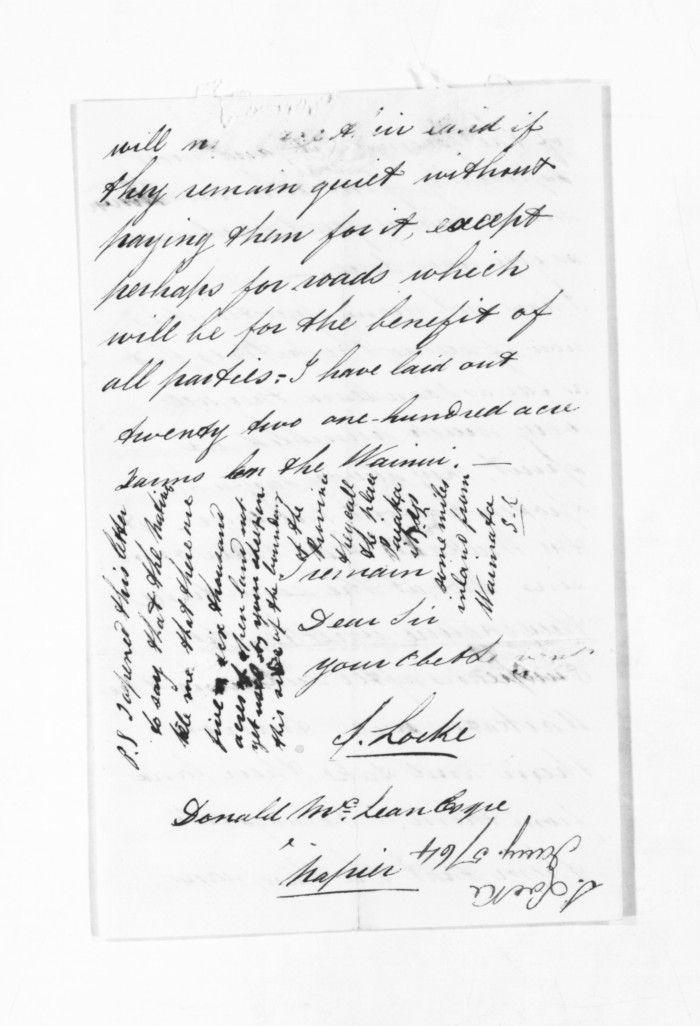 will n in and if
they remain quiet without
paying them for it, except
perhaps for roads which
will be for the benefit of
all parties = I have laid out
twenty two one-hundred acre
farms on the Wainui. —
I remain
Dear Sir
your Obedt
S. Locke
Donald McLean Esqre
Napier
P.S I opened this letter
to say that the natives
tele me that there are
five or six thousand
acres of their land not
yet sold to your sheeprun
this side of the boundary
of the
Province
they call
the place
some miles
inland from
Waimata
S. L
S. Locke
Jany 5/64